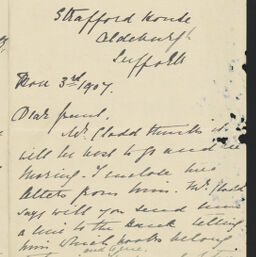 Strafford House
Aldeburgh
Suffolk
Nov 3rd 1907.
Dear
Mr Gladd thinks it
will be best to go and see
Waring. I enclose his
letters from him. Mr Gladd
says will you send him
a line to the Bank telling
him which books belong
and